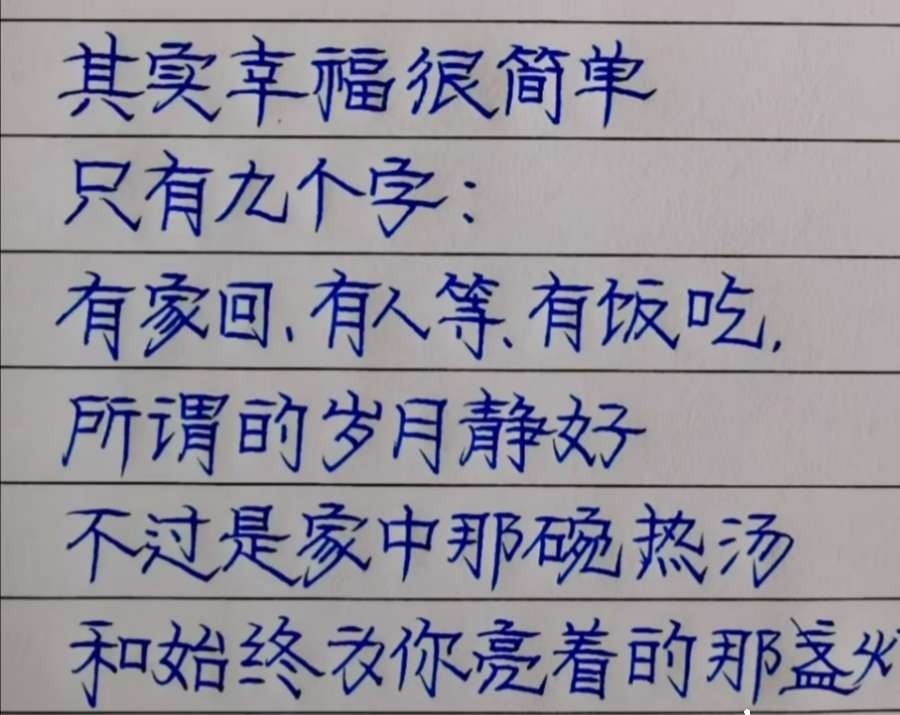 其实幸福很简单
只有九个字：
有家回、有人等、有饭吃，
所谓的岁月静好
不过是家中那碗热汤
和始终为你亮着的那盏